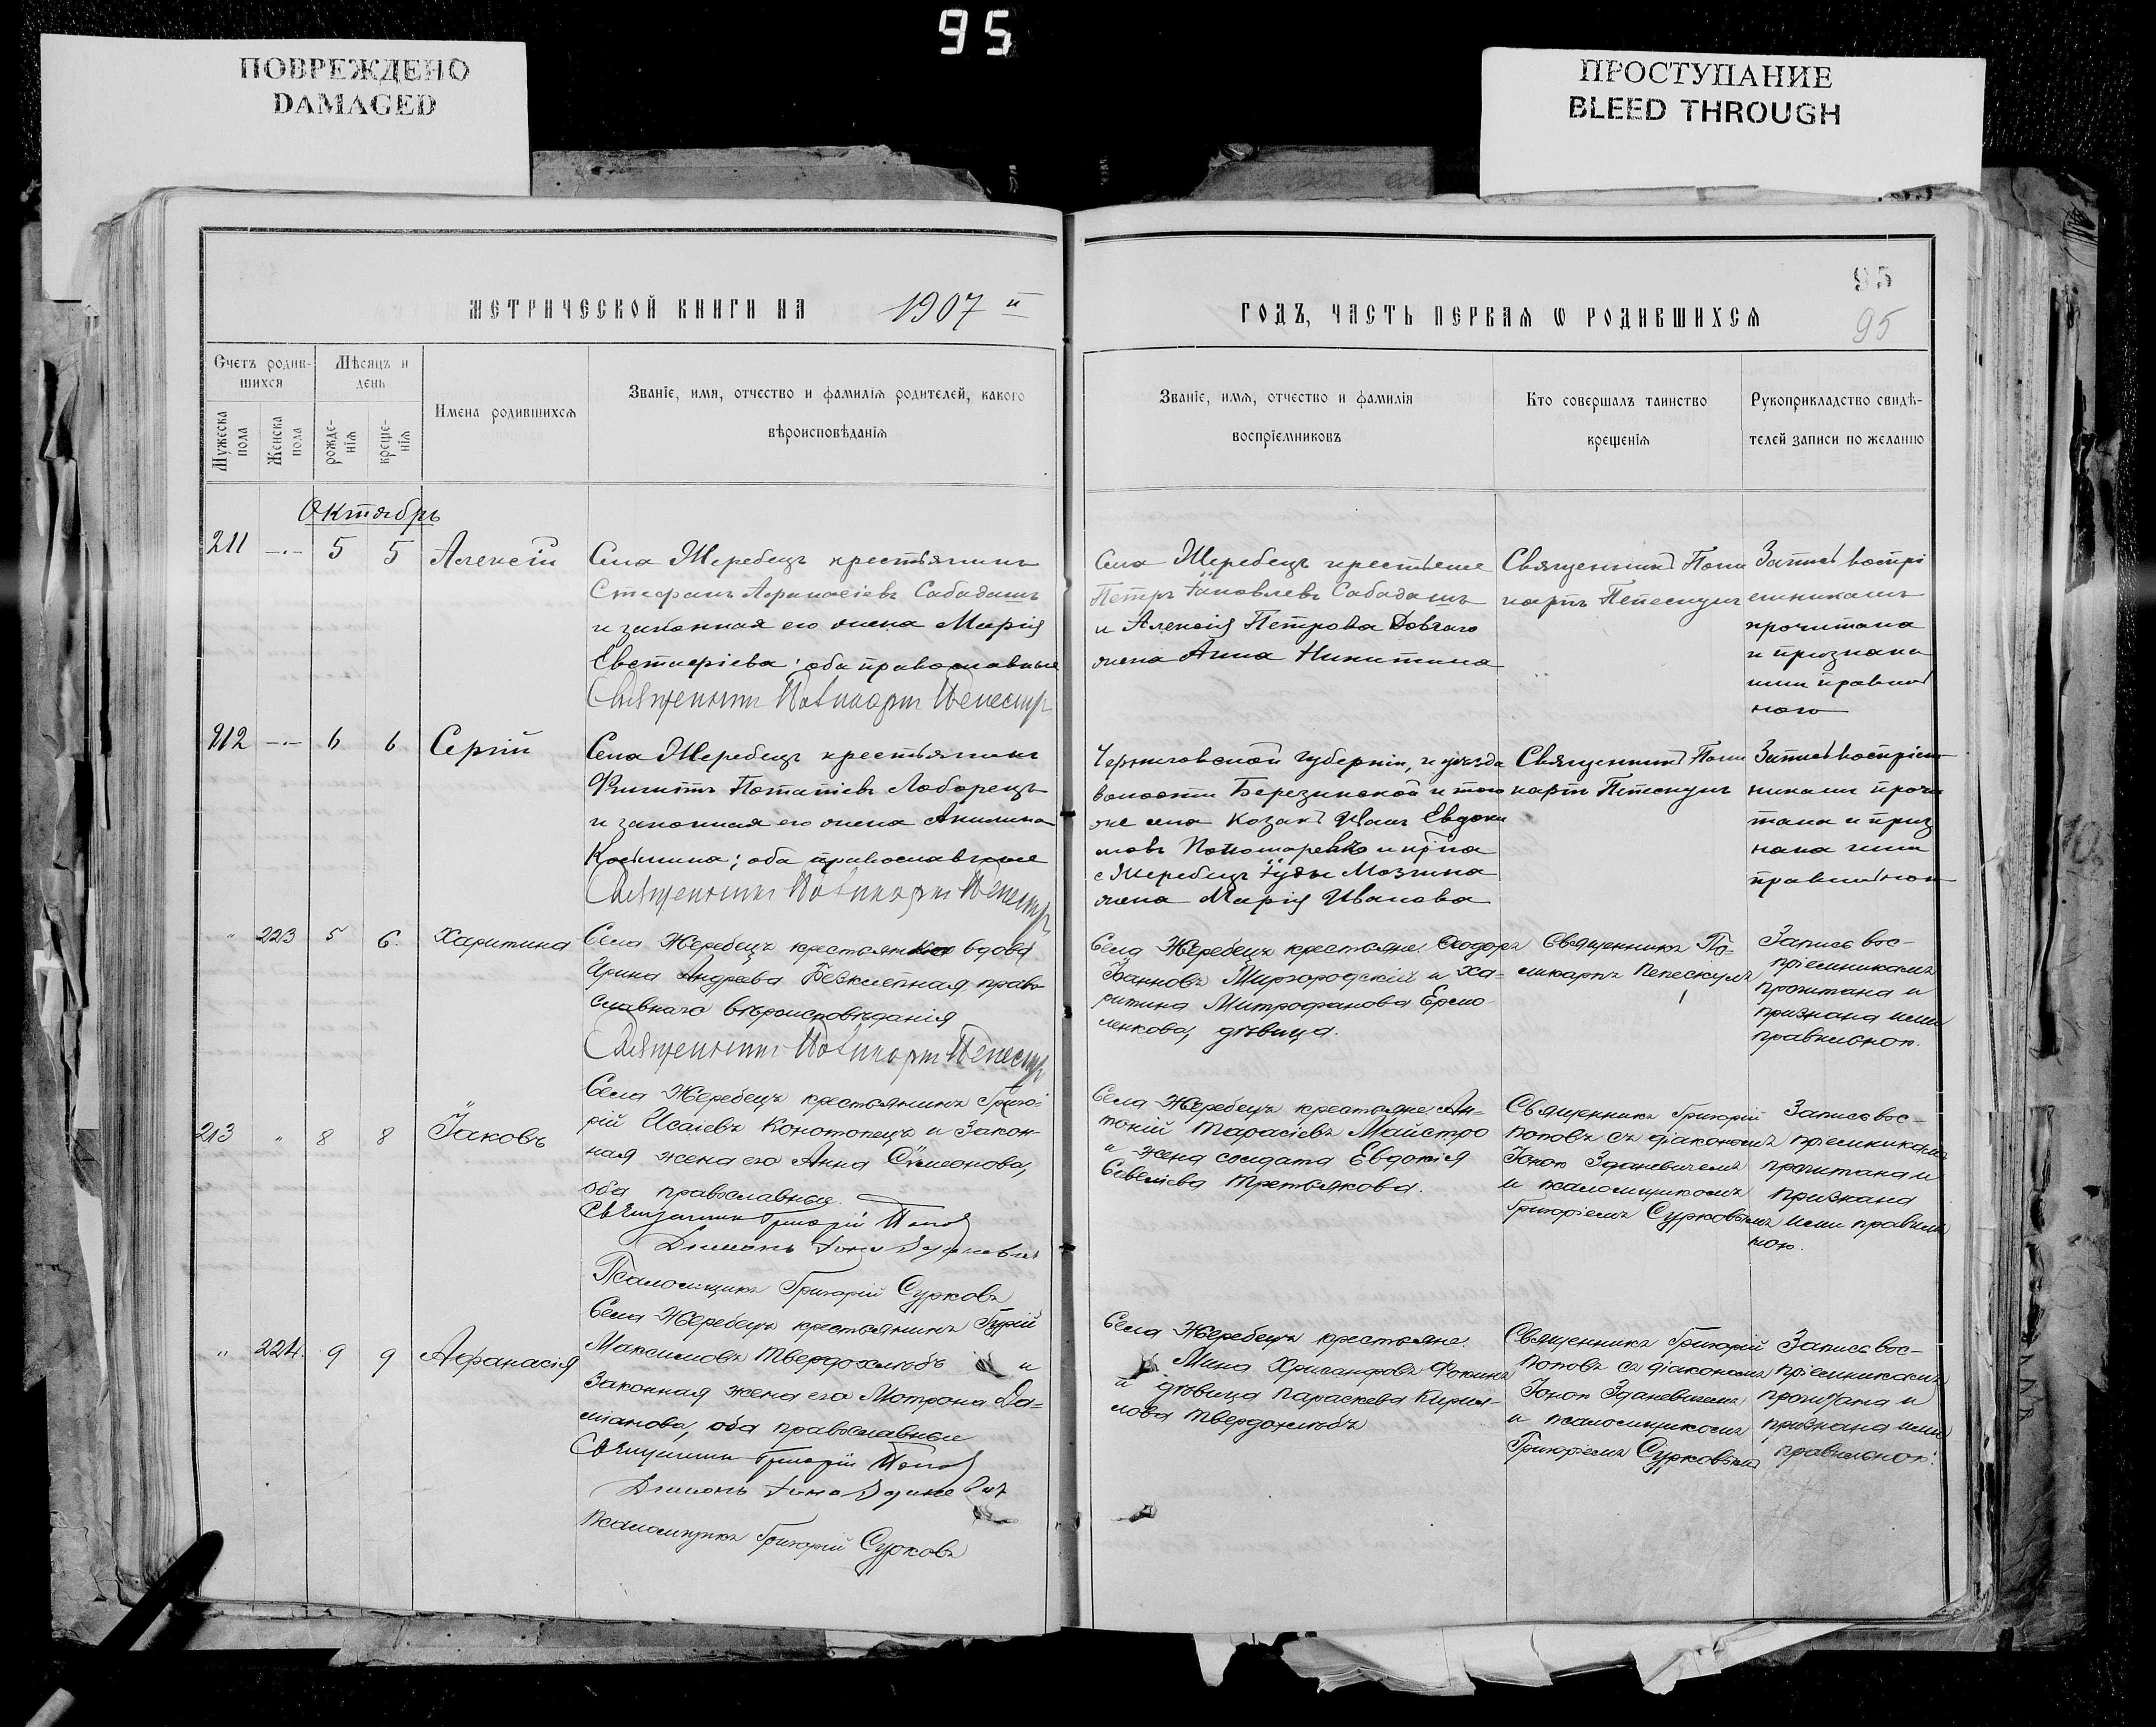 95
ПОВРЕЖДЕНО
DAMAGED
ПРОСТУПАНИЕ
BLEED THROUGH
95
МЕТРИЧЕСКОЙ КНИГИ НА 1907 й
ГОДЪ, ЧАСТЬ ПЕРВАЯ Ѡ РОДИВШИХСЯ
95
Счетъ родив-
шихся
Мѣсяцъ и
день
Мужеска
пола
Женска
пола
рожде-
нія
креще-
нія
Имена родившихся
Званіе, имя, отчество и фамилія родителей, какого
вѣроисповѣданія
Званіе, имя, отчество и фамилія
воспріемниковъ
Кто совершалъ таинство
крещенія
Рукоприкладство свидѣ-
телей записи по желанію
Октябрь
211 -·- 5 5 Алексій
Села Жеребецъ крестьянинъ
Стефанъ Афанасіевъ Сабадашъ
и законная его жена Марія
Евстафіева; оба православные
Священникъ Поликарпъ Пепескулъ
Села Жеребецъ крестьяне
Петръ Іаковлевъ Сабадашъ
и Алексія Петрова Довгаго
жена Анна Никитина
Священникъ Поли
карпъ Пепескулъ
Запись воспрі
емникамъ
прочитана
и признана
ими правиль
ною
212 -·- 6 6 Сергій
Села Жеребецъ крестьянинъ
Филиппъ Потапіевъ Лоборецъ
и законная его жена Акилина
Косьмина; оба православные
Священникъ Поликарпъ Пепескулъ
Черниговской губерніи, и уѣзда
волости Березинской и того
же села козакъ Иванъ Евдоки
мовъ Пономаренко и кр-на
с. Жеребецъ Іуды Мозгина
жена Марія Иванова
Священникъ Поли
карпъ Пепескулъ
Запись воспріем
никами прочи
тана и приз
нана ими
правильною
" 223 5 6. Харитина
Села Жеребецъ крестьянка вдова
Ирина Андреева Безклепная право
славнаго вѣроисповѣданія
Священникъ Поликарпъ Пепескулъ
Села Жеребецъ крестьяне: Ѳеодоръ
Іоанновъ Миргородскій и Ха-
ритина Митрофанова Ермо
ленкова, дѣвица.
Священникъ По-
ликарпъ Пепескулъ
Запись вос-
пріемникамъ
прочитана и
признана ими
правильною.
213 " 8 8 Іаковъ
Села Жеребецъ крестьянинъ Григо-
рій Исаіевъ Конотопецъ и закон-
ная жена его Анна Сѵмеонова,
оба православные.
Священникъ Григорій Поповъ
Діаконъ Іона Зданевичъ
Псаломщикъ Григорій Сурковъ
Села Жеребецъ крестьяне: Ан-
тоній Тарасіевъ Майстро
и жена солдата Евдокія
Савеліева Третьякова.
Священникъ Григорій
Поповъ съ діакономъ
Іоною Зданевичемъ
и псаломщикомъ
Григоріемъ Сурковымъ
Запись вос-
пріемникамъ
прочитана и
признана
ими правиль
ною.
" 224. 9 9 Аѳанасія
Села Жеребецъ крестьянинъ Гурій
Максимовъ Твердохлѣбъ и
законная жена его Мотрона Да-
міанова, оба православные
Священникъ Григорій Поповъ
Діаконъ Іона Зданевичъ
Псаломщикъ Григорій Сурковъ
Села Жеребецъ крестьяне:
Мина Хрисанфовъ Фокинъ
и дѣвица Параскева Кирил-
лова Твердохлѣбъ
Священникъ Григорій
Поповъ съ діакономъ
Іоною Зданевичемъ
и псаломщикомъ
Григоріемъ Сурковымъ
Запись вос-
пріемникамъ
прочитана и
признана ими
правильною.